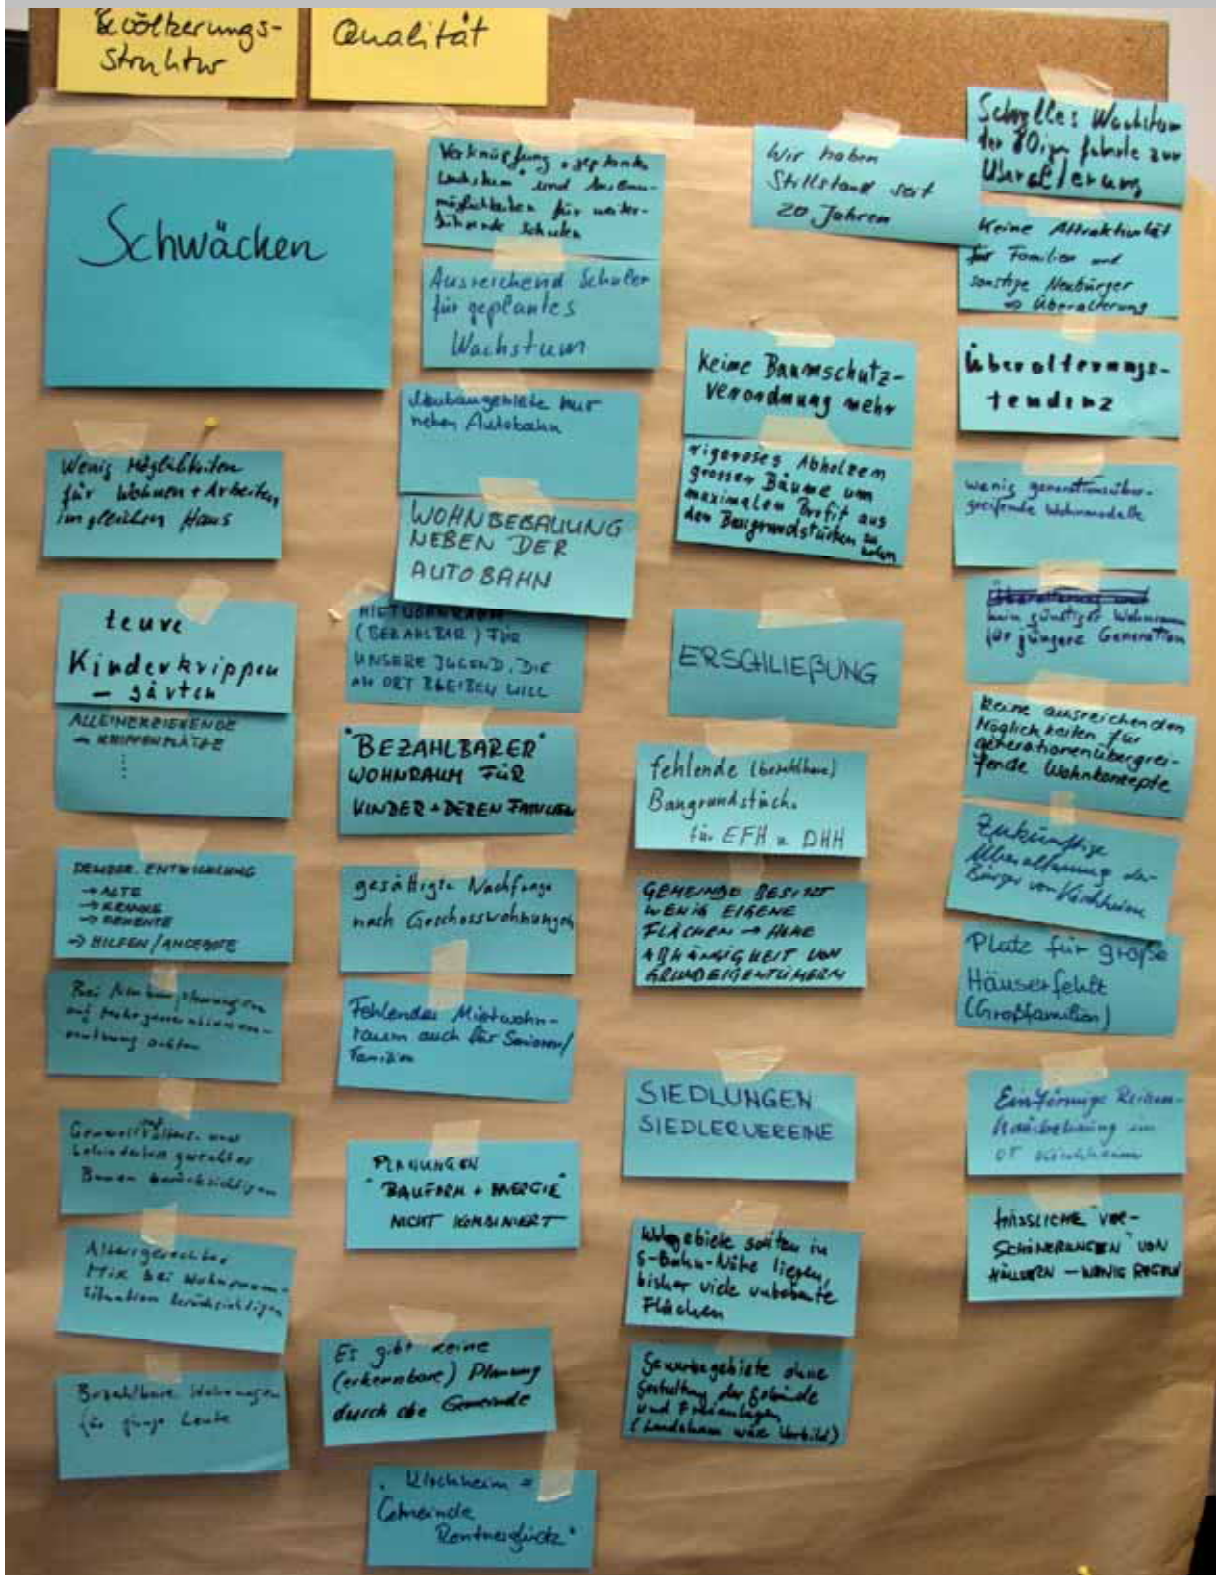 Bevölkerungs-
struktur
Qualität
Schwächen
Wenig Möglichkeiten
für Wohnen + Arbeiten
im gleichen Haus
teure
Kinderkrippen
- gärten
ALLEINERZIEHENDE
→ KRIPPENPLÄTZE
⋮
DEMOGR. ENTWICKLUNG
→ ALTE
→ KRANKE
→ DEMENTE
→ HILFEN / ANGEBOTE
Bei
auf Mehrgenerationen-
nutzung achten
und
gerechtes
Bauen berücksichtigen
Altersgerechter
Mix bei Wohnraum-
situation berücksichtigen
Bezahlbare Wohnungen
für junge Leute
Verknüpfung "geplantes
Wachstum" und Ausbau-
möglichkeiten für weiter-
führende Schulen
Ausreichend Schüler
für geplantes
Wachstum
Neubaugebiete nur
neben Autobahn
WOHNBEBAUUNG
NEBEN DER
AUTOBAHN
MIETWOHNRAUM
(BEZAHLBAR) FÜR
UNSERE JUGEND, DIE
AM ORT BLEIBEN WILL
"BEZAHLBARER"
WOHNRAUM FÜR
KINDER + DEREN FAMILIEN
gesättigte Nachfrage
nach Geschosswohnungen
Fehlender Mietwohn-
raum auch für Senioren/
Familien
PLANUNGEN
"BAUFORM + ENERGIE"
NICHT KOMBINIERT
Es gibt keine
(erkennbare) Planung
durch die Gemeinde
"Kirchheim =
Gemeinde
Rentnerglück"
Wir haben
Stillstand seit
20 Jahren
Keine Baumschutz-
verordnung mehr
rigoroses Abholzen
grosser Bäume um
maximalen Profit aus
den Baugrundstücken zu
holen
ERSCHLIEßUNG
fehlende (bezahlbare)
Baugrundstück.
für EFH u. DHH
GEMEINDE BESITZT
WENIG EIGENE
FLÄCHEN → HOHE
ABHÄNGIGKEIT VON
GRUNDEIGENTÜMERN
SIEDLUNGEN
SIEDLERVEREINE
Wohngebiete sollten in
S-Bahn-Nähe liegen,
bisher viele unbebaute
Flächen
Gewerbegebiete ohne
Gestaltung der Gebäude
und Freianlagen
(Landsham wäre Vorbild)
Schnelles Wachstum
der 80iger führte zur
Überalterung
Keine Attraktivität
für Familien und
sonstige Neubürger
⇒ Überalterung
Überalterungs-
tendenz
wenig generationsüber-
greifende Wohnmodelle
Überalterung und
kein günstiger Wohnraum
für jüngere Generation
Keine ausreichenden
Möglichkeiten für
generationenübergrei-
fende Wohnkonzepte
Zukünftige
Überalterung der
Bürger von Kirchheim
Platz für große
Häuser fehlt
(Großfamilien)
Einförmige Reihen-
hausbebauung im
OT Kirchheim
HÄSSLICHE "VER-
SCHÖNERUNGEN" VON
HÄUSERN - WENIG REGELN